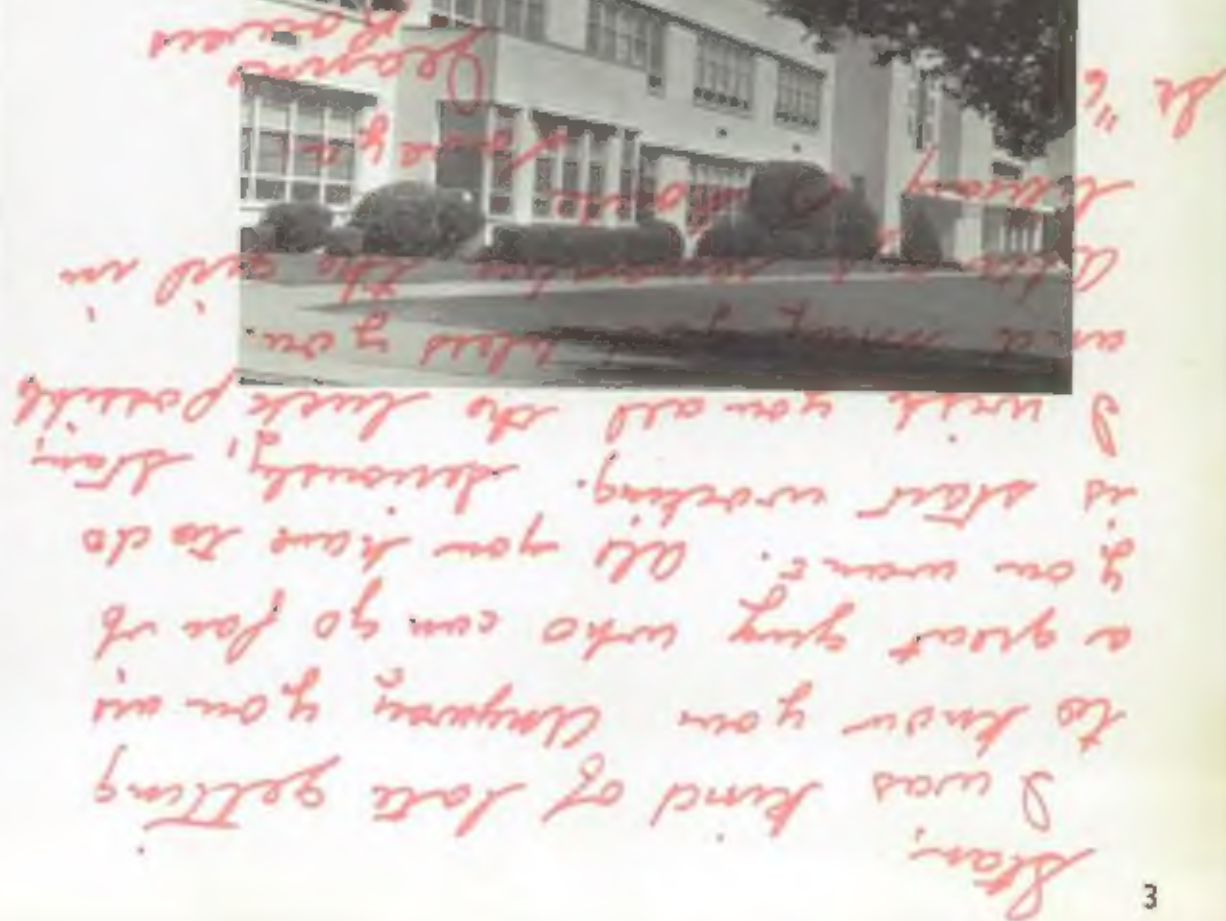 Stan,
I was kind of late getting
to know you Anyway you are
a great guy who can go far if
you want. All you have to do
is start working. Seriously, Stan,
I wish you all the luck possible
and may god bless you.
Always remember the girl in
library
Love ya
Rowan
3